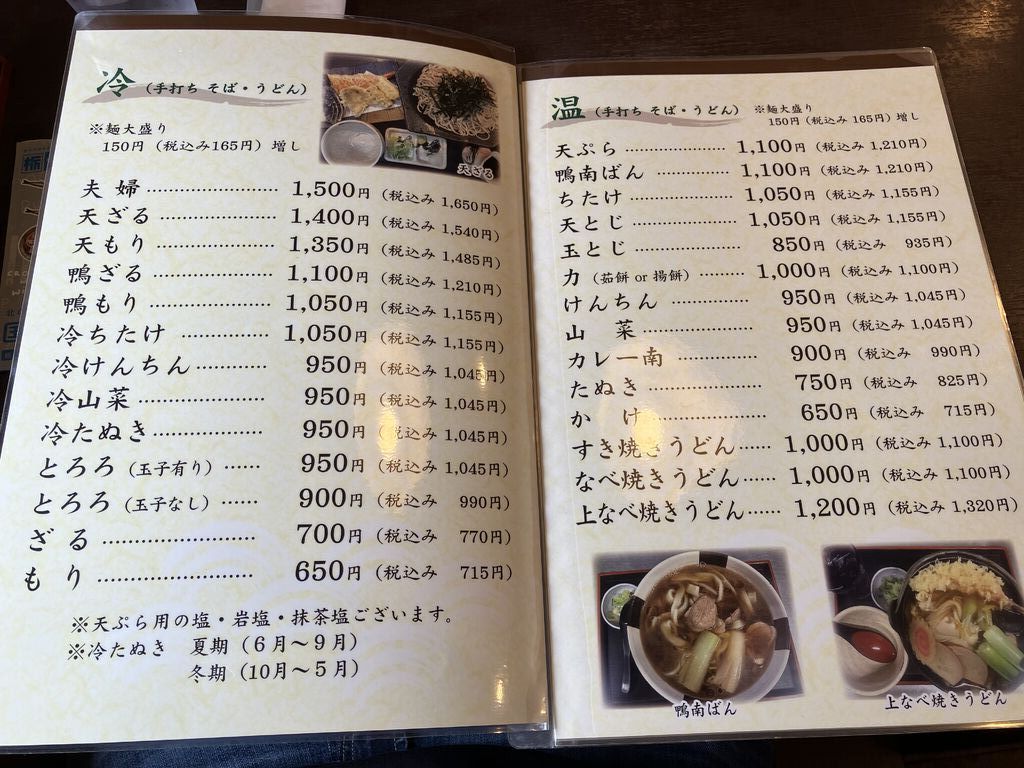 冷 (手打ち そば・うどん)
※麺大盛り
150円 (税込み165円) 増し
天ざる
夫 婦 ……………… 1,500円 (税込み 1,650円)
天ざる ……………… 1,400円 (税込み 1,540円)
天もり ……………… 1,350円 (税込み 1,485円)
鴨ざる ……………… 1,100円 (税込み 1,210円)
鴨もり ……………… 1,050円 (税込み 1,155円)
冷ちたけ ………… 1,050円 (税込み 1,155円)
冷けんちん ………… 950円 (税込み 1,045円)
冷山菜 ……………… 950円 (税込み 1,045円)
冷たぬき …………… 950円 (税込み 1,045円)
とろろ (玉子有り) …… 950円 (税込み 1,045円)
とろろ (玉子なし) …… 900円 (税込み 990円)
ざ る ………………… 700円 (税込み 770円)
も り ………………… 650円 (税込み 715円)
※天ぷら用の塩・岩塩・抹茶塩ございます。
※冷たぬき 夏期 (6月～9月)
冬期 (10月～5月)
温 (手打ち そば・うどん)
※麺大盛り
150円 (税込み 165円) 増し
天ぷら ……………… 1,100円 (税込み 1,210円)
鴨南ばん …………… 1,100円 (税込み 1,210円)
ちたけ ……………… 1,050円 (税込み 1,155円)
天とじ ……………… 1,050円 (税込み 1,155円)
玉とじ ……………… 850円 (税込み 935円)
力 (茹餅 or 揚餅) ……… 1,000円 (税込み 1,100円)
けんちん …………… 950円 (税込み 1,045円)
山 菜 ……………… 950円 (税込み 1,045円)
カレー南 …………… 900円 (税込み 990円)
たぬき ……………… 750円 (税込み 825円)
か け ……………… 650円 (税込み 715円)
すき焼きうどん …… 1,000円 (税込み 1,100円)
なべ焼きうどん …… 1,000円 (税込み 1,100円)
上なべ焼きうどん …… 1,200円 (税込み 1,320円)
鴨南ばん
上なべ焼きうどん